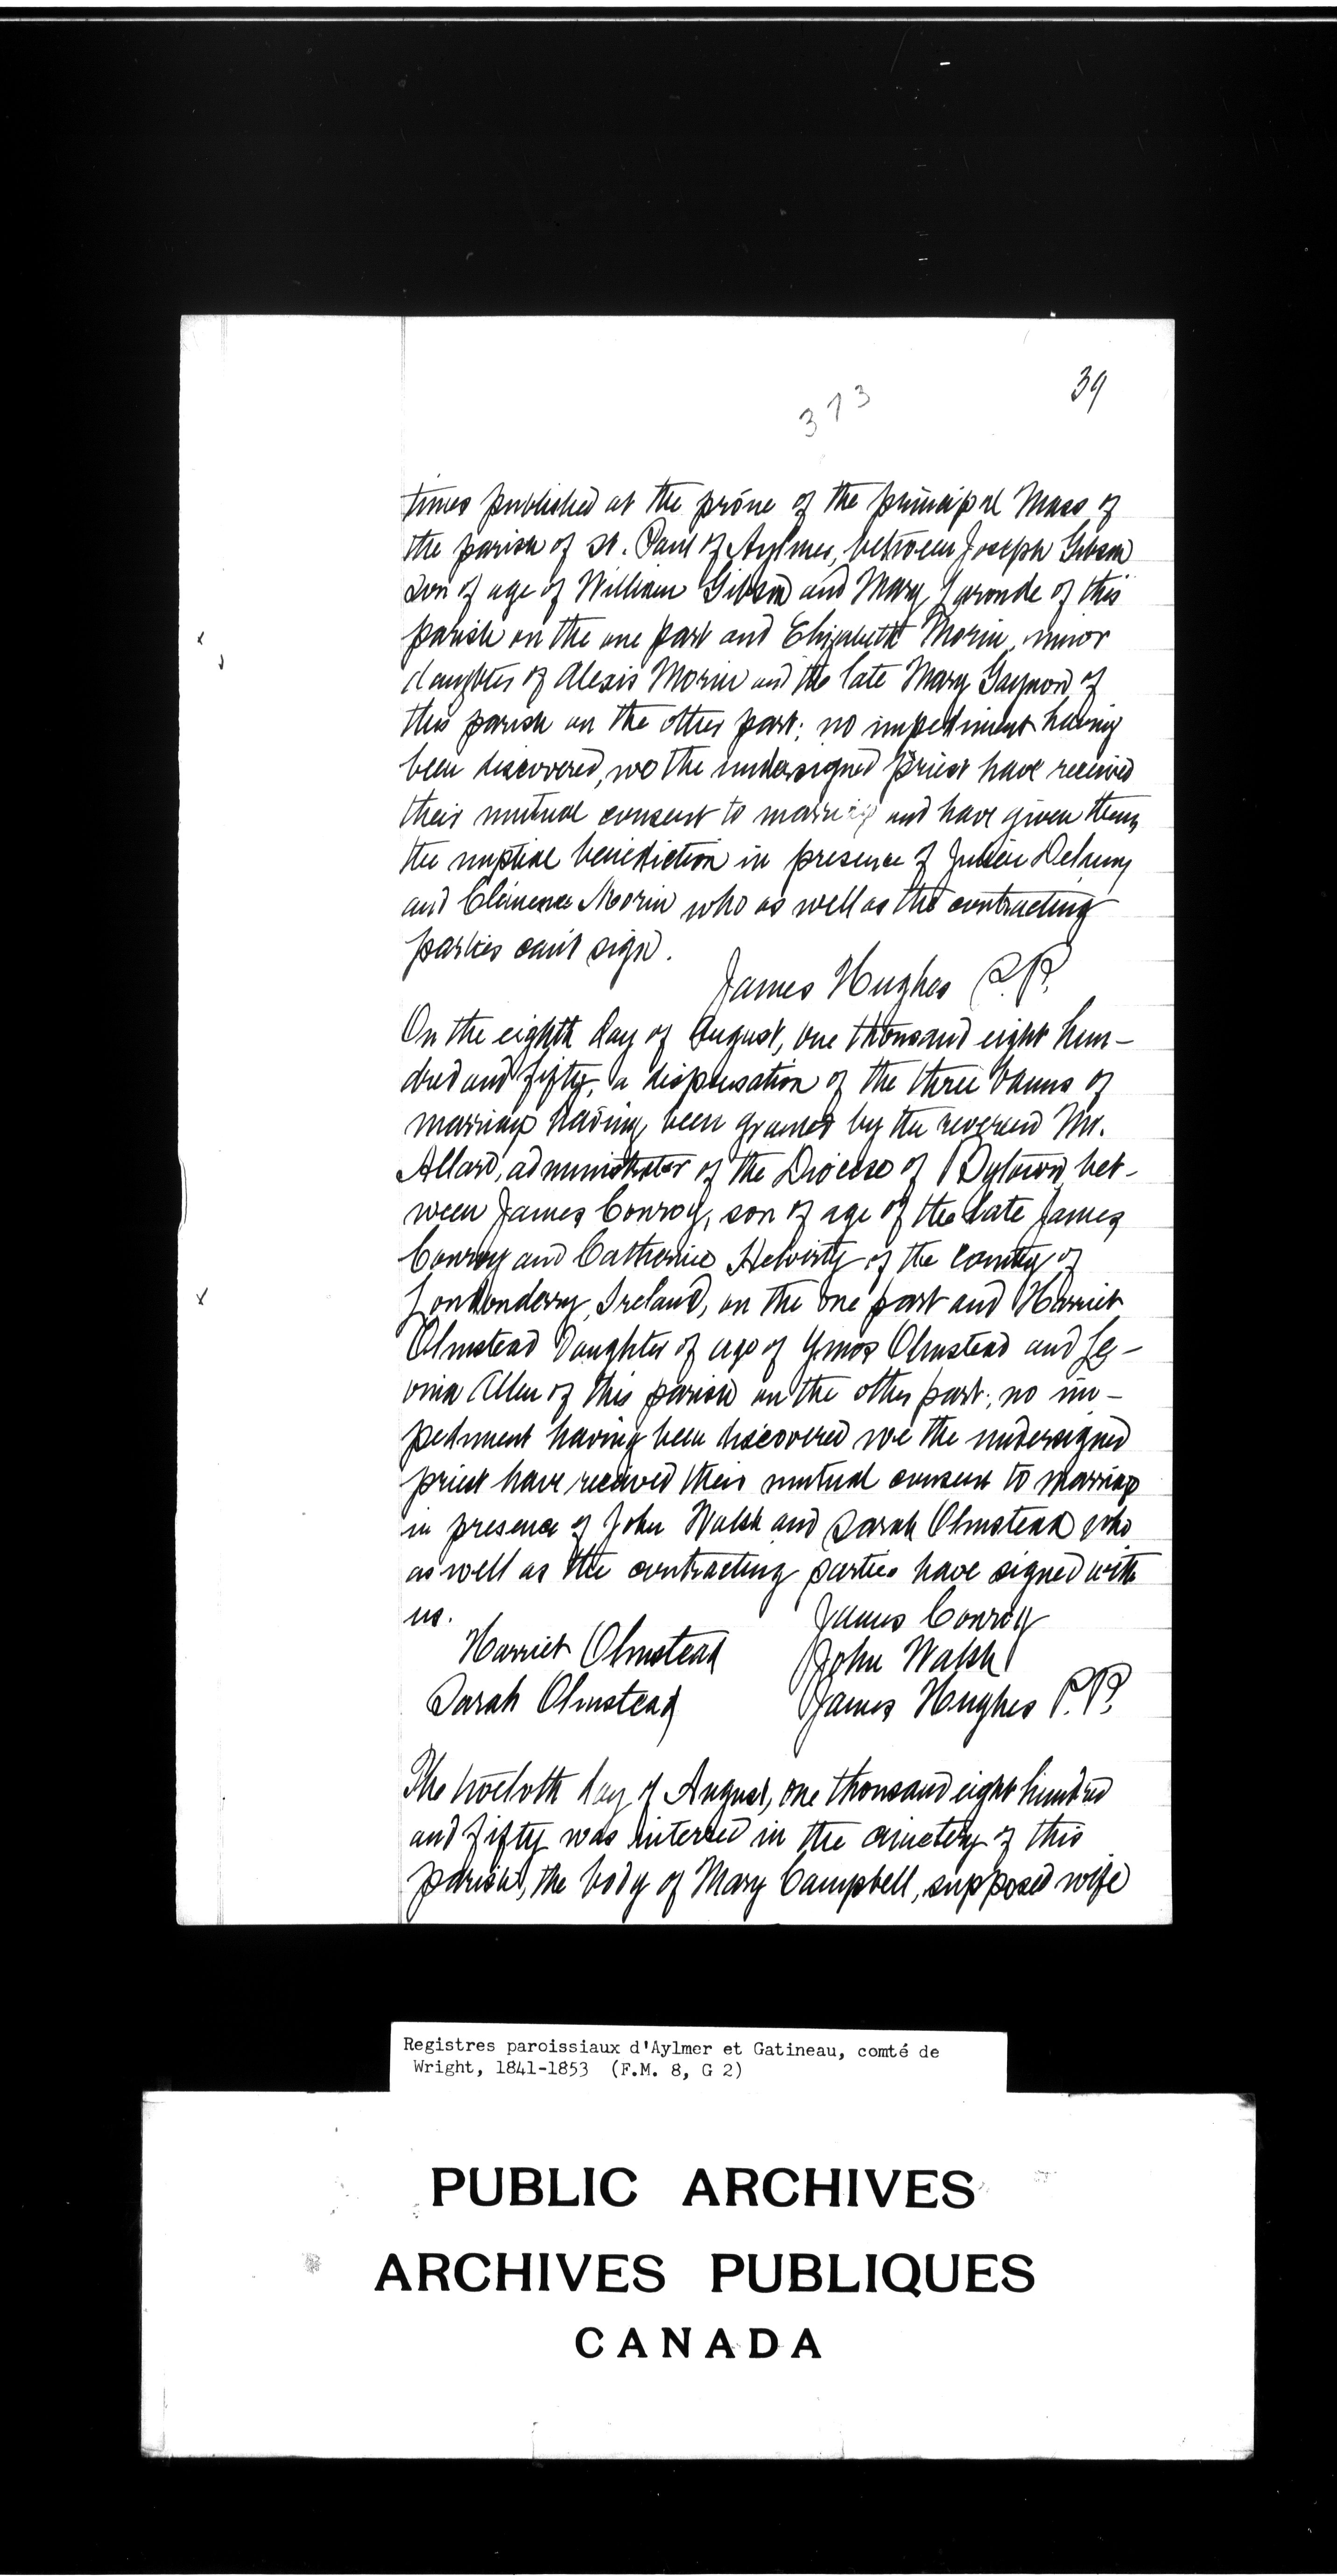 39
373
times published at the prône of the principal Mass of
the parish of St. Paul of Aylmer, between Joseph Gibson
son of age of William Gibson and Mary Laronde of this
parish on the one part and Elizabeth Morin, minor
daughter of Alexis Morin and the late Mary Gaynon of
this parish on the other part; no impediment having
been discovered, we the undersigned priest have received
their mutual consent to marriage and have given them
the nuptial benediction in presence of Julien
and Clémence Morin who as well as the contracting
parties can't sign.
James Hughes P.P.
On the eighth day of August, one thousand eight hun-
dred and fifty, a dispensation of the three banns of
marriage having been granted by the reverend Mr.
Allard, administrator of the Diocese of Bytown, bet-
ween James Conroy, son of age of the late James
Conroy and Catherine of the county of
Londonderry, Ireland, on the one part and Harriet
Olmstead daughter of age of Olmstead and Le-
vina Allen of this parish on the other part; no im-
pediment having been discovered we the undersigned
priest have received their mutual consent to marriage
in presence of John Walsh and Sarah Olmstead who
as well as the contracting parties have signed with
us. James Conroy
Harriet Olmstead John Walsh
Sarah Olmstead James Hughes P.P.
The twelvth day of August, one thousand eight hundred
and fifty was interred in the cimetery of this
parish, the body of Mary Campbell, supposed wife
Registres paroissiaux d'Aylmer et Gatineau, comté de
Wright, 1841-1853 (F.M. 8, G 2)
PUBLIC ARCHIVES
ARCHIVES PUBLIQUES
CANADA